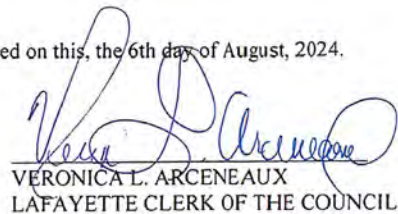 ed on this, the 6th day of August, 2024.
Veronica L. Arceneaux
VERONICA L. ARCENEAUX
LAFAYETTE CLERK OF THE COUNCIL